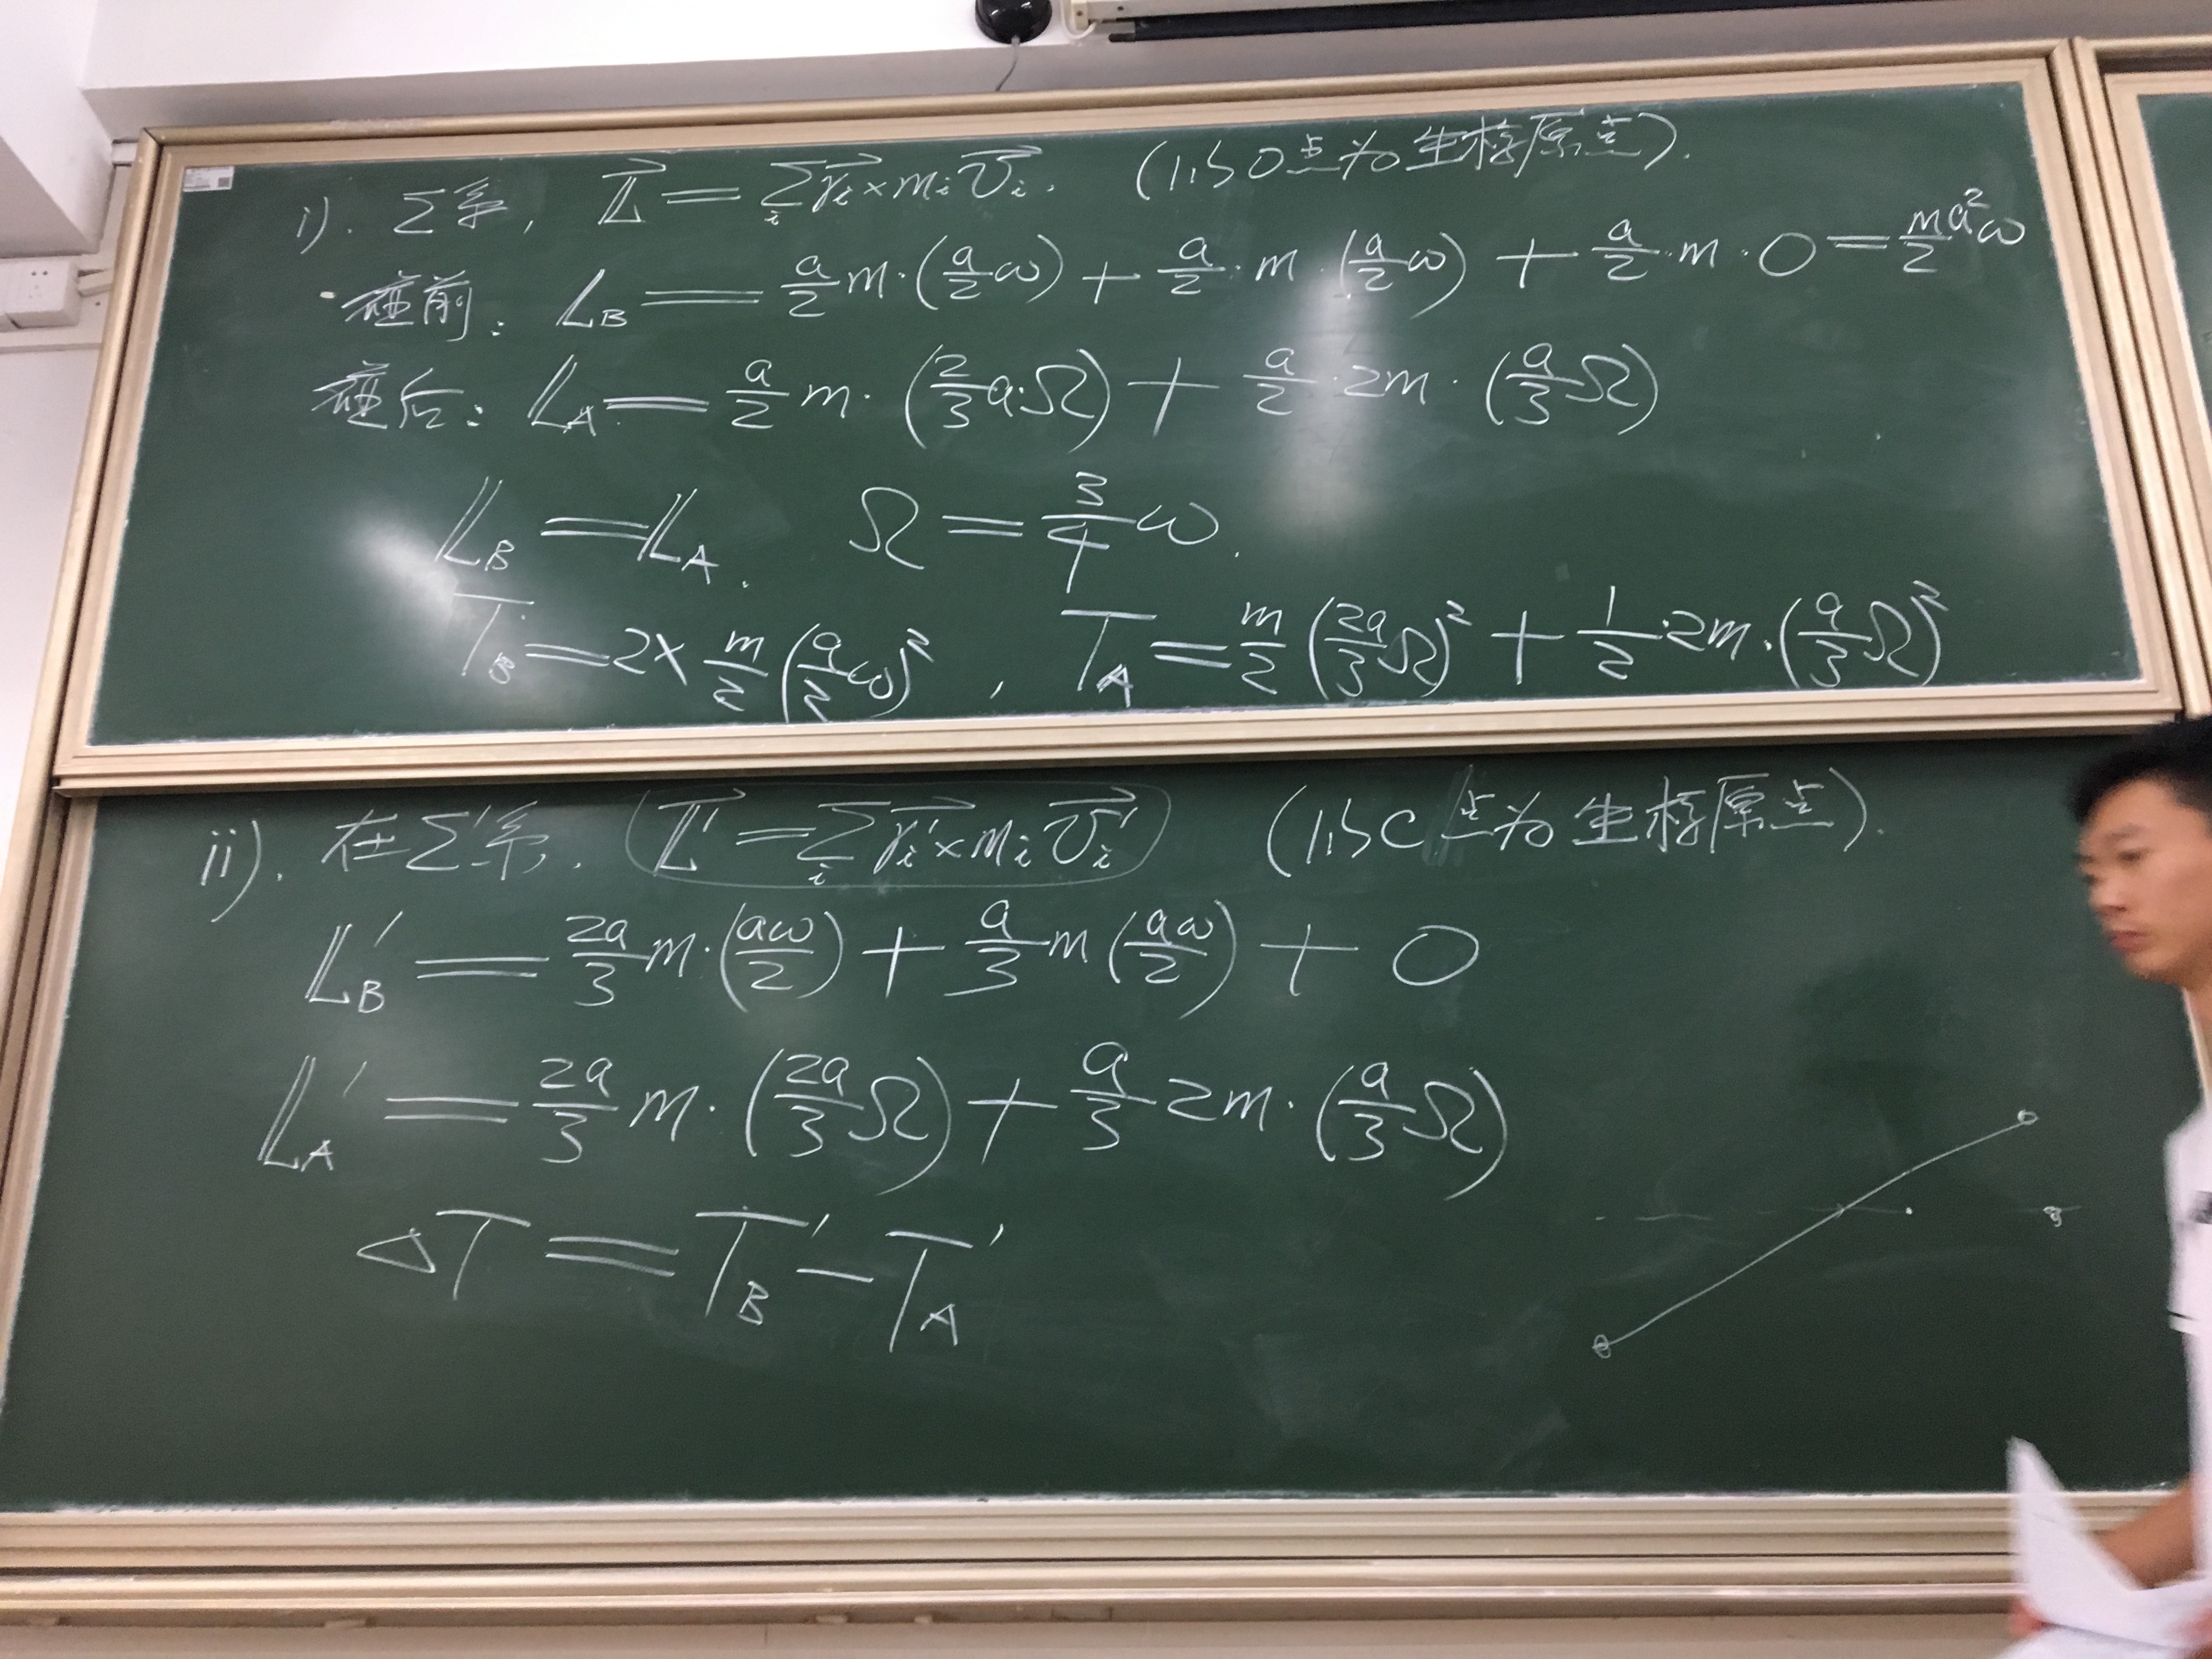 i). Σ系, L⃗ = Σᵢ r⃗ᵢ × mᵢ v⃗ᵢ. (以O点为坐标原点).
碰前: L_B = a/2 m·(a/2 ω) + a/2·m·(a/2 ω) + a/2·m·0 = m/2 a²ω
碰后: L_A = a/2 m·(2/3 a·Ω) + a/2·2m·(a/3 Ω)
L_B = L_A. Ω = 3/4 ω.
T_B = 2× m/2 (a/2 ω)², T_A = m/2 (2a/3 Ω)² + 1/2·2m·(a/3 Ω)²
ii). 在Σ'系, L⃗' = Σᵢ r⃗ᵢ' × mᵢ v⃗ᵢ' (以C点为坐标原点).
L_B' = 2a/3 m·(aω/2) + a/3 m (aω/2) + 0
L_A' = 2a/3 m·(2a/3 Ω) + a/3 2m·(a/3 Ω)
△T = T_B' − T_A'